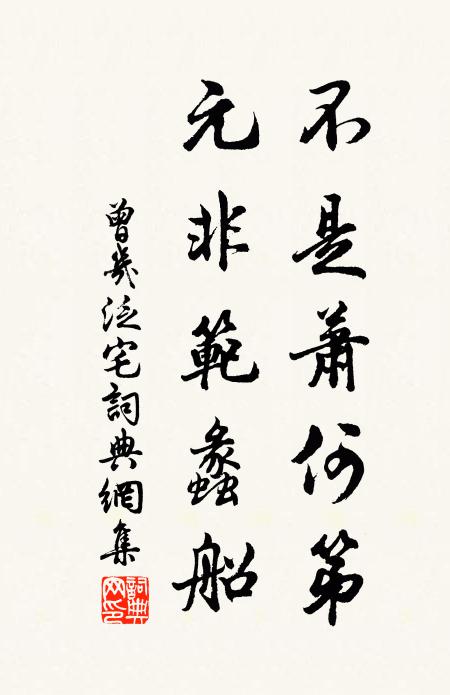 不是萧何第
元非範蠡船
曾幾泛宅詞典網集
詞典网印